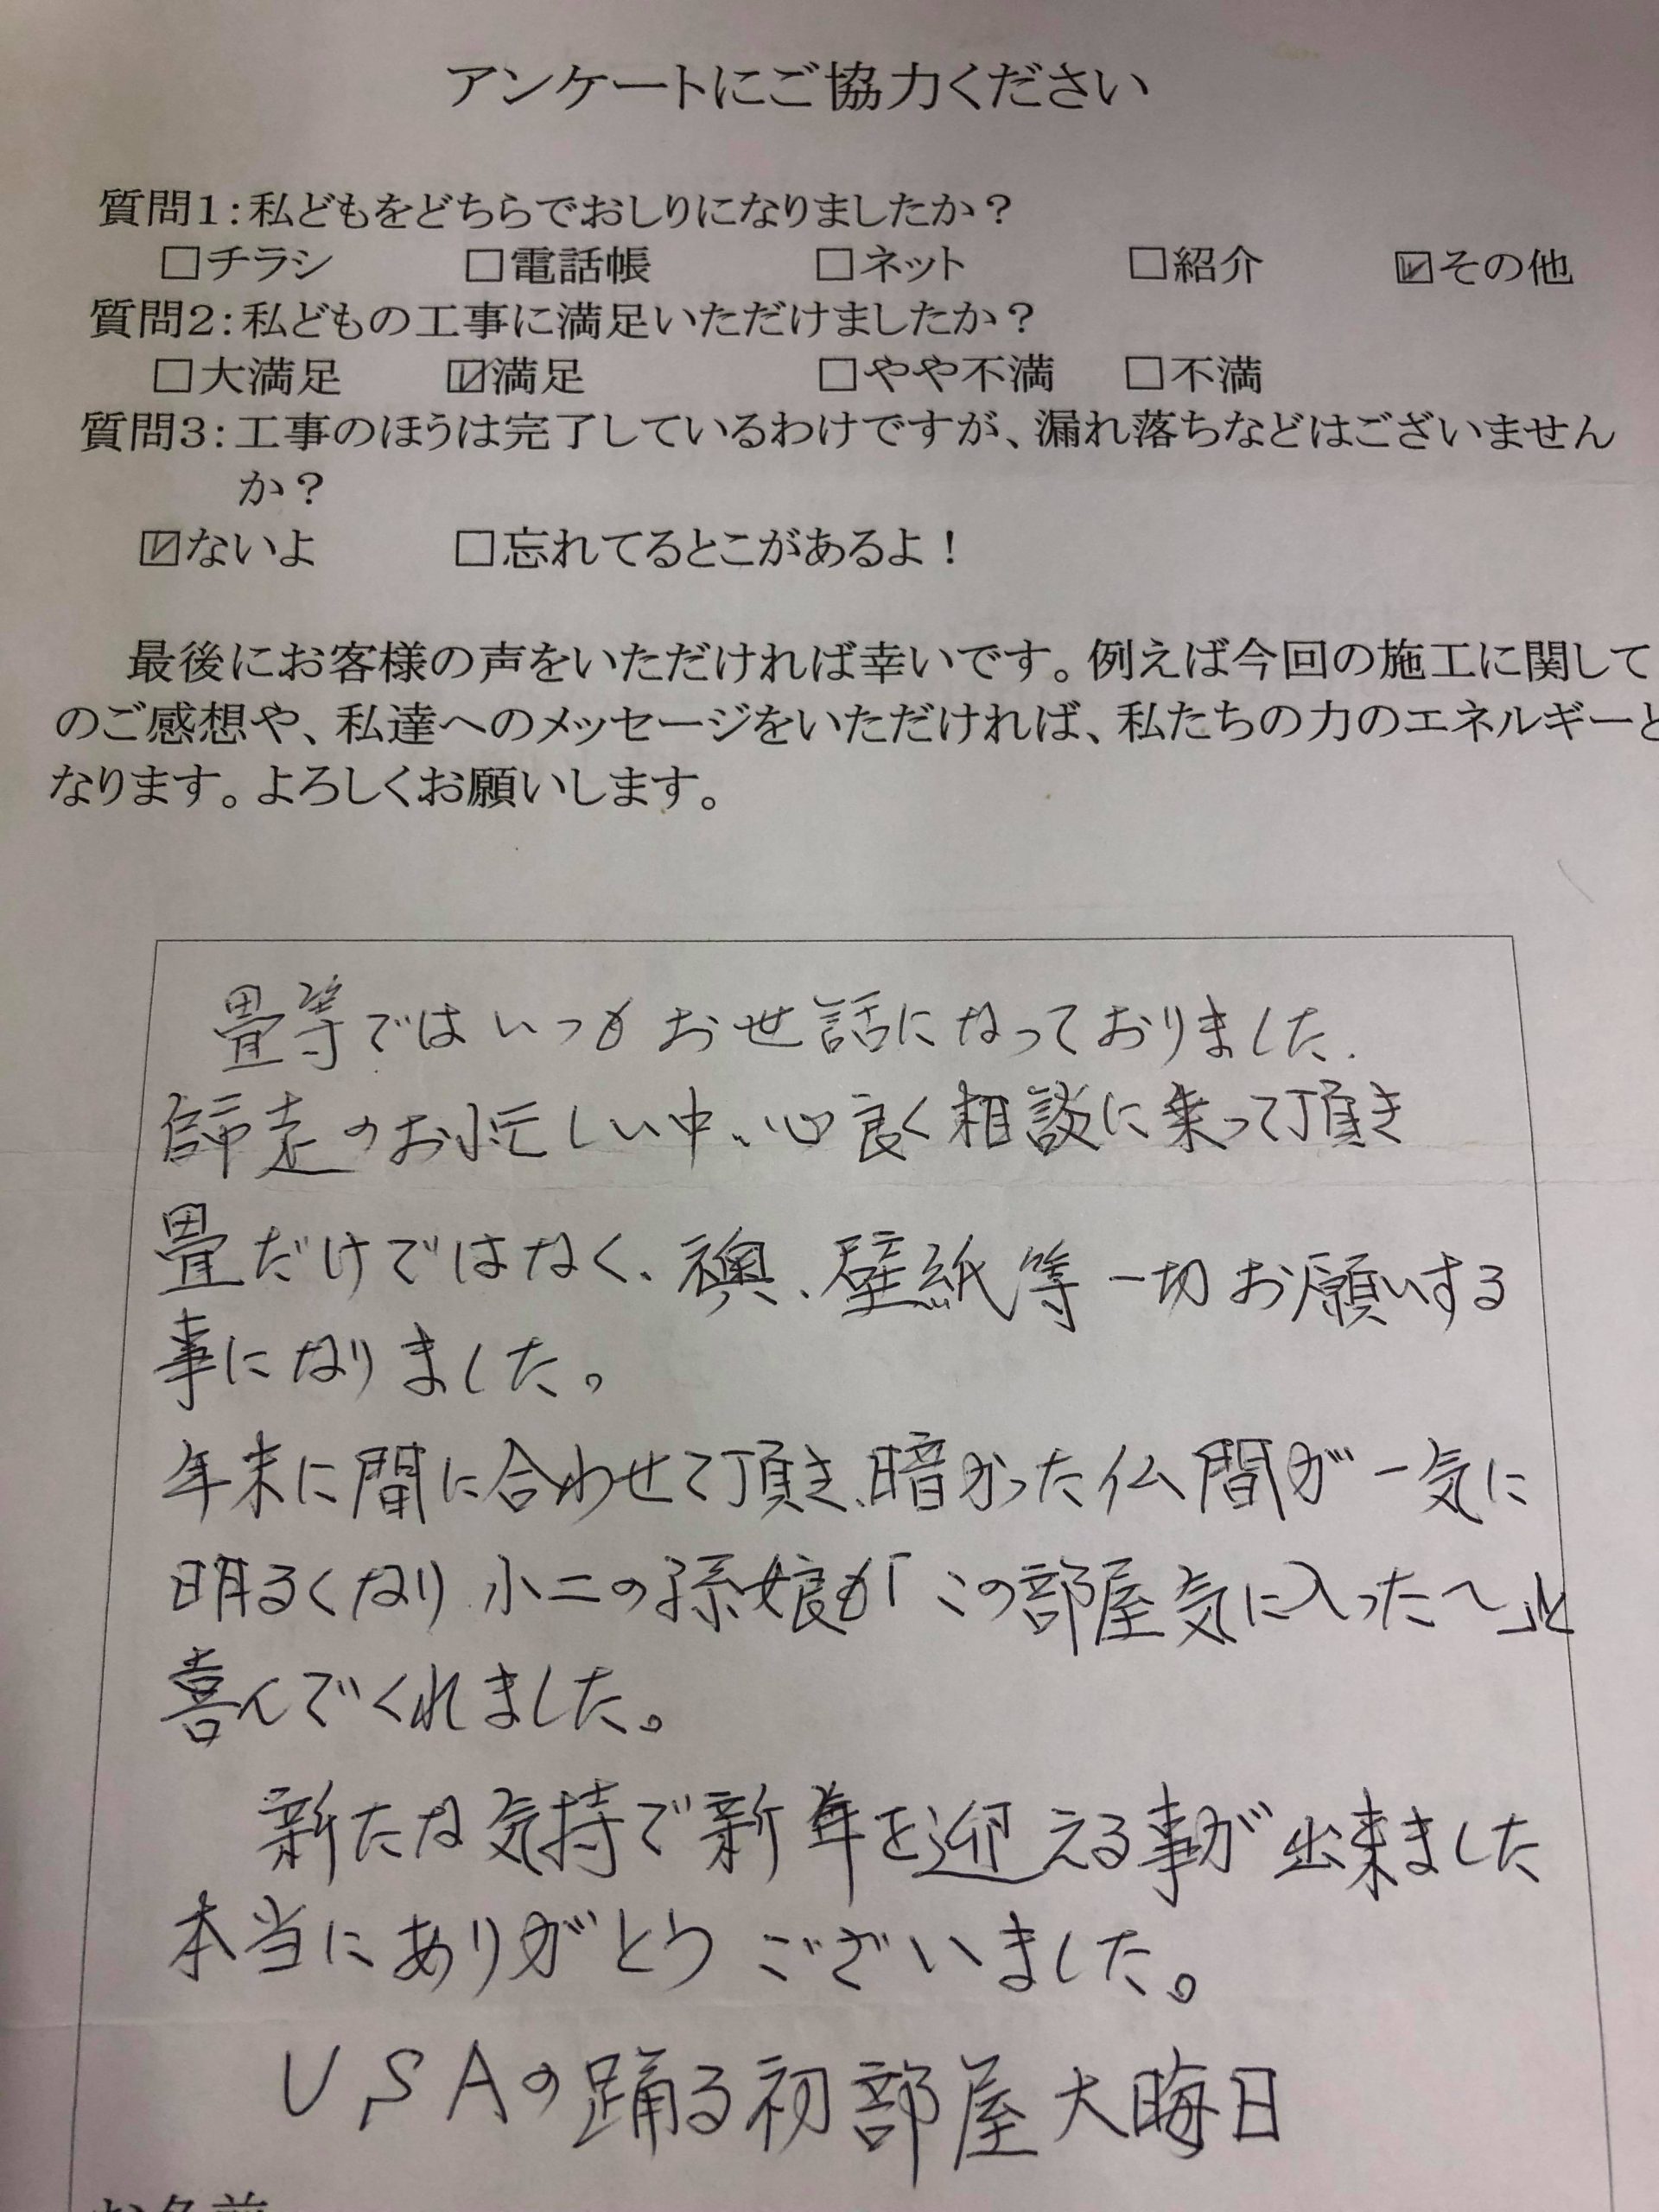 アンケートにご協力ください
質問1:私どもをどちらでおしりになりましたか?
□チラシ □電話帳 □ネット □紹介 ☑その他
質問2:私どもの工事に満足いただけましたか?
□大満足 ☑満足 □やや不満 □不満
質問3:工事のほうは完了しているわけですが、漏れ落ちなどはございません
か?
☑ないよ □忘れてるとこがあるよ!
最後にお客様の声をいただければ幸いです。例えば今回の施工に関して
のご感想や、私達へのメッセージをいただければ、私たちの力のエネルギーと
なります。よろしくお願いします。
畳等ではいつもお世話になっておりました.
師走のお忙しい中、心良く相談に乗って頂き
畳だけではなく、襖、壁紙等一切お願いする
事になりました。
年末に間に合わせて頂き、暗かった仏間が一気に
明るくなり 小二の孫娘が「この部屋気に入った〜」と
喜んでくれました。
新たな気持で新年を迎える事が出来ました
本当にありがとうございました。
USAの踊る初部屋大晦日
お名前